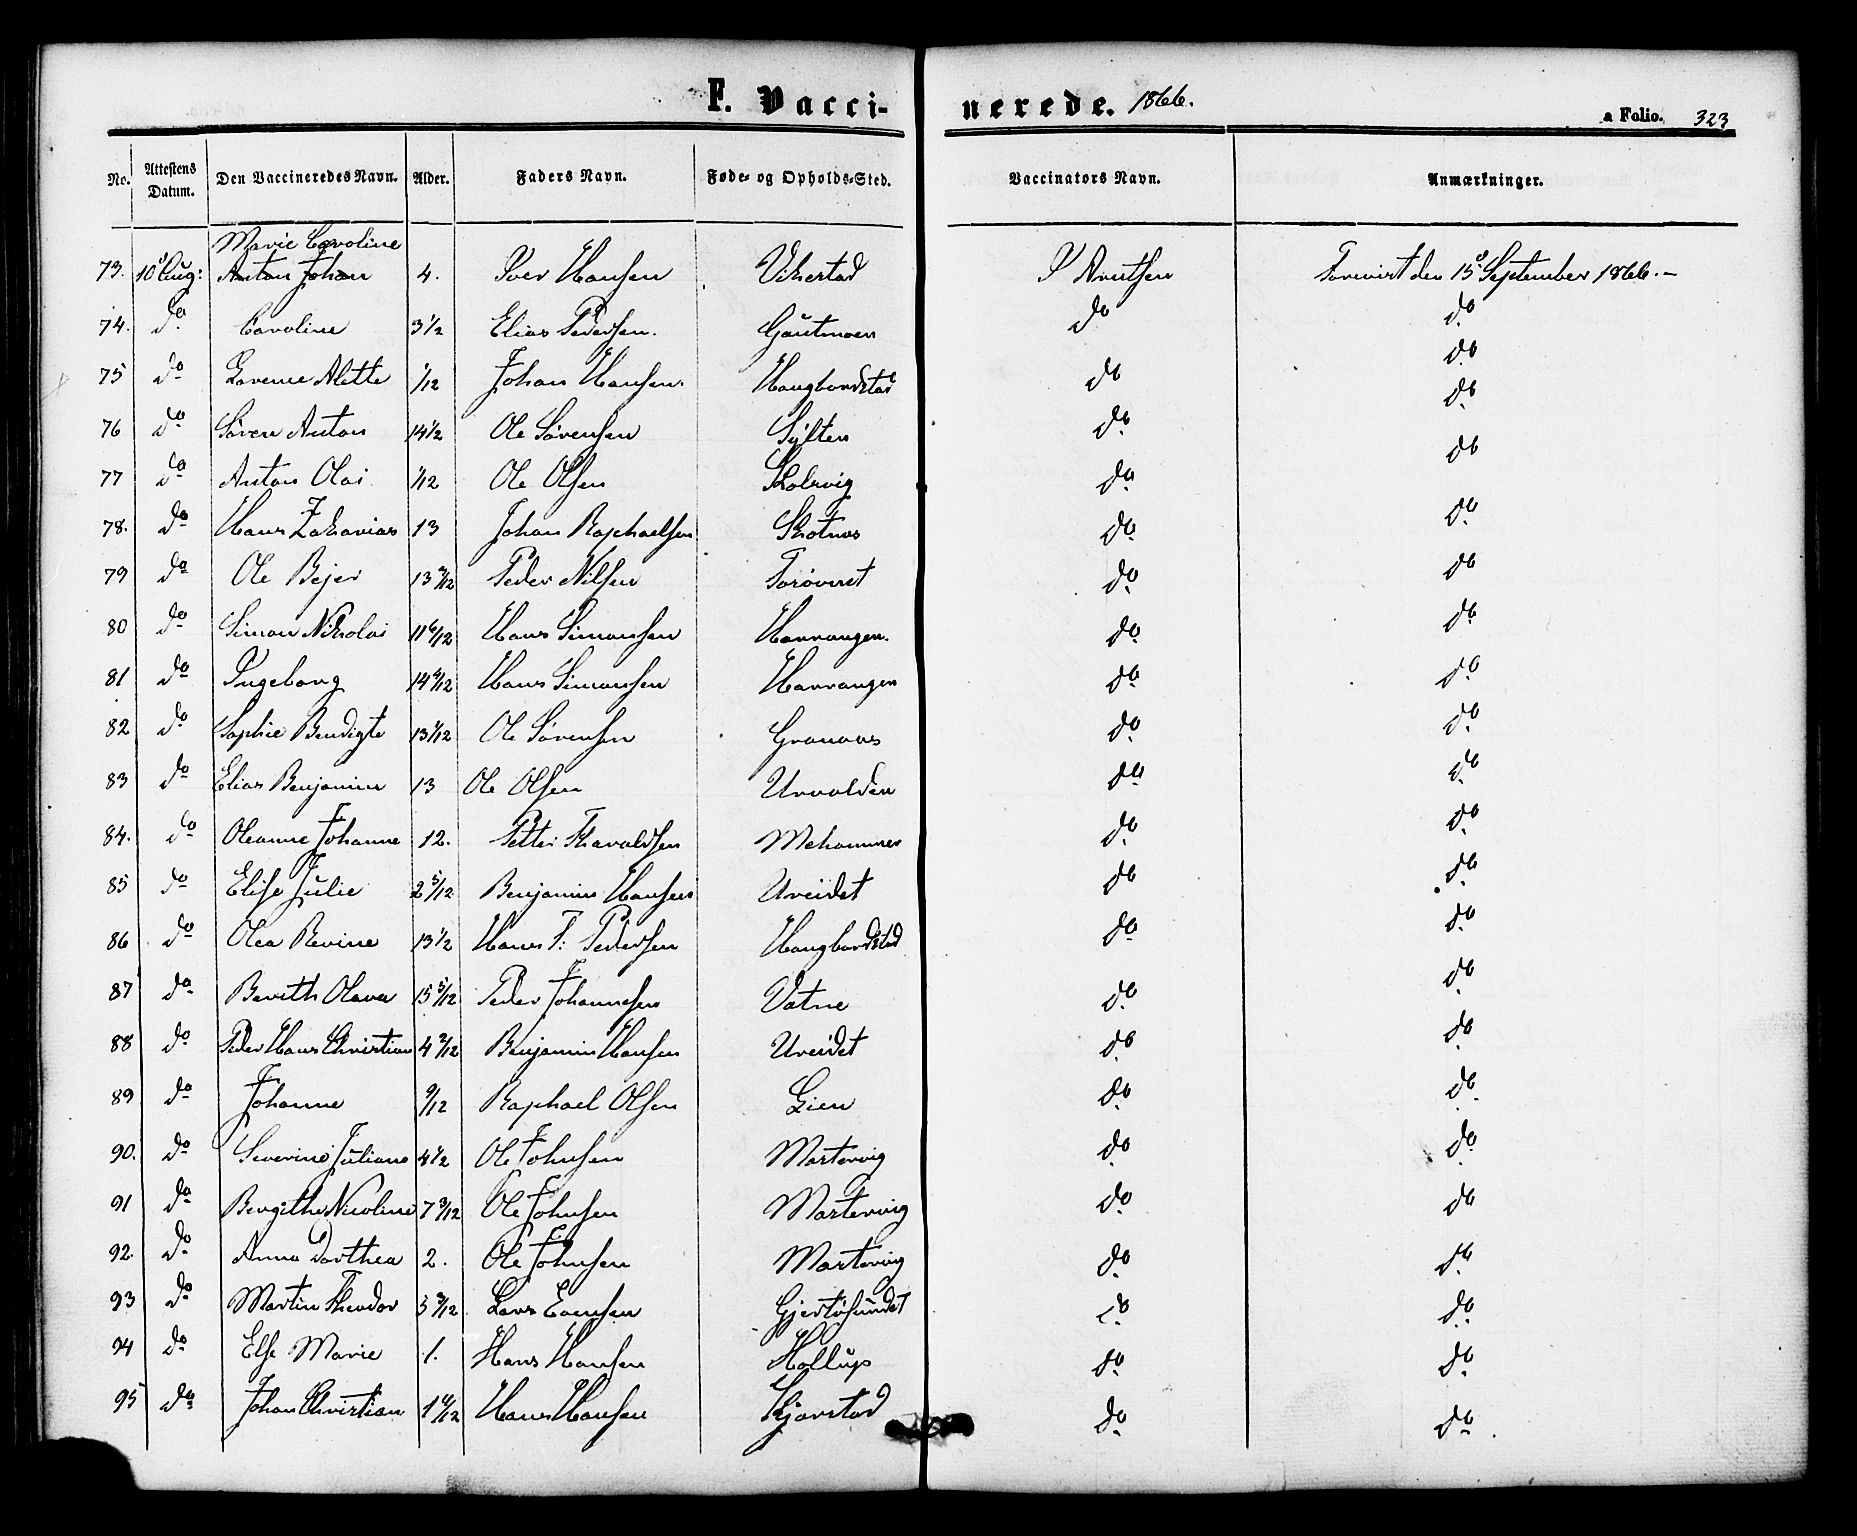 F. Vaccinerede. 1866.
a Folio. 323
No. Attestens Datum. Den Vaccineredes Navn. Alder. Faders Navn. Føde- og Opholds-Sted. Vaccinators Navn. Anmærkninger.
Marie Caroline
73. 10 Aug: Anton Johan 4. Iver Hansen Vikestad Forevist den 15 September 1866.-
74. do Caroline 3 1/2 Elias Pedersen. Gautmoen do do
75 do Lorense Alette 1/12 Johan Hansen. Haugbardstad do do
76 do Sören Anton 14 1/2 Ole Sörensen Sylten do do
77 do Anton Olai 1/12 Ole Olsen Skolevig do do
78. do Hans Zakarias 13 Johan Raphaelsen Skotnæs do do
79 do Ole Bejer 13 Peder Nilsen Toröveret do do
80 do Simon Nikolai 11 6/12 Hans Simonsen Harrangen. do do
81 do Ingeborg 14 Hans Simonsen Harrangen do do
82 do Sophie Bendigte 13 1/12 Ole Sörensen Granaas do do
83 do Elias Benjamin 13 Ole Olsen Urvolden do do
84. do Oleanne Johanne 12. Petter Tharaldsen Mehammer do do
85 do Elise Julie 2 5/12 Benjamin Hansen Ureidet do do
86 do Olea Revine 13 1/2 Hans P: Pedersen Haugbardstad do do
87 do Berith Olava 15 5/12 Peder Johannesen Vatne do do
88 do Peder Hans Christian 4 2/12 Benjamin Hansen Ureidet do do
89 do Johanne 9/12 Raphael Olsen Lien do do
90. do Severine Juliane 4 1/2 Ole Johnsen Martervig do do
91 do Bergithe Nicoline 7 3/12 Ole Johnsen Martervig do do
92. do Anna Dorthea 2. Ole Johnsen Martervig do do
93 do Martin Theodor 5 3/12 Lars Evensen Gjertösundet do do
94 do Else Marie 1. Hans Hansen Hollup do do
95 do Johan Christian 1 Hans Hansen Kjærstad do do